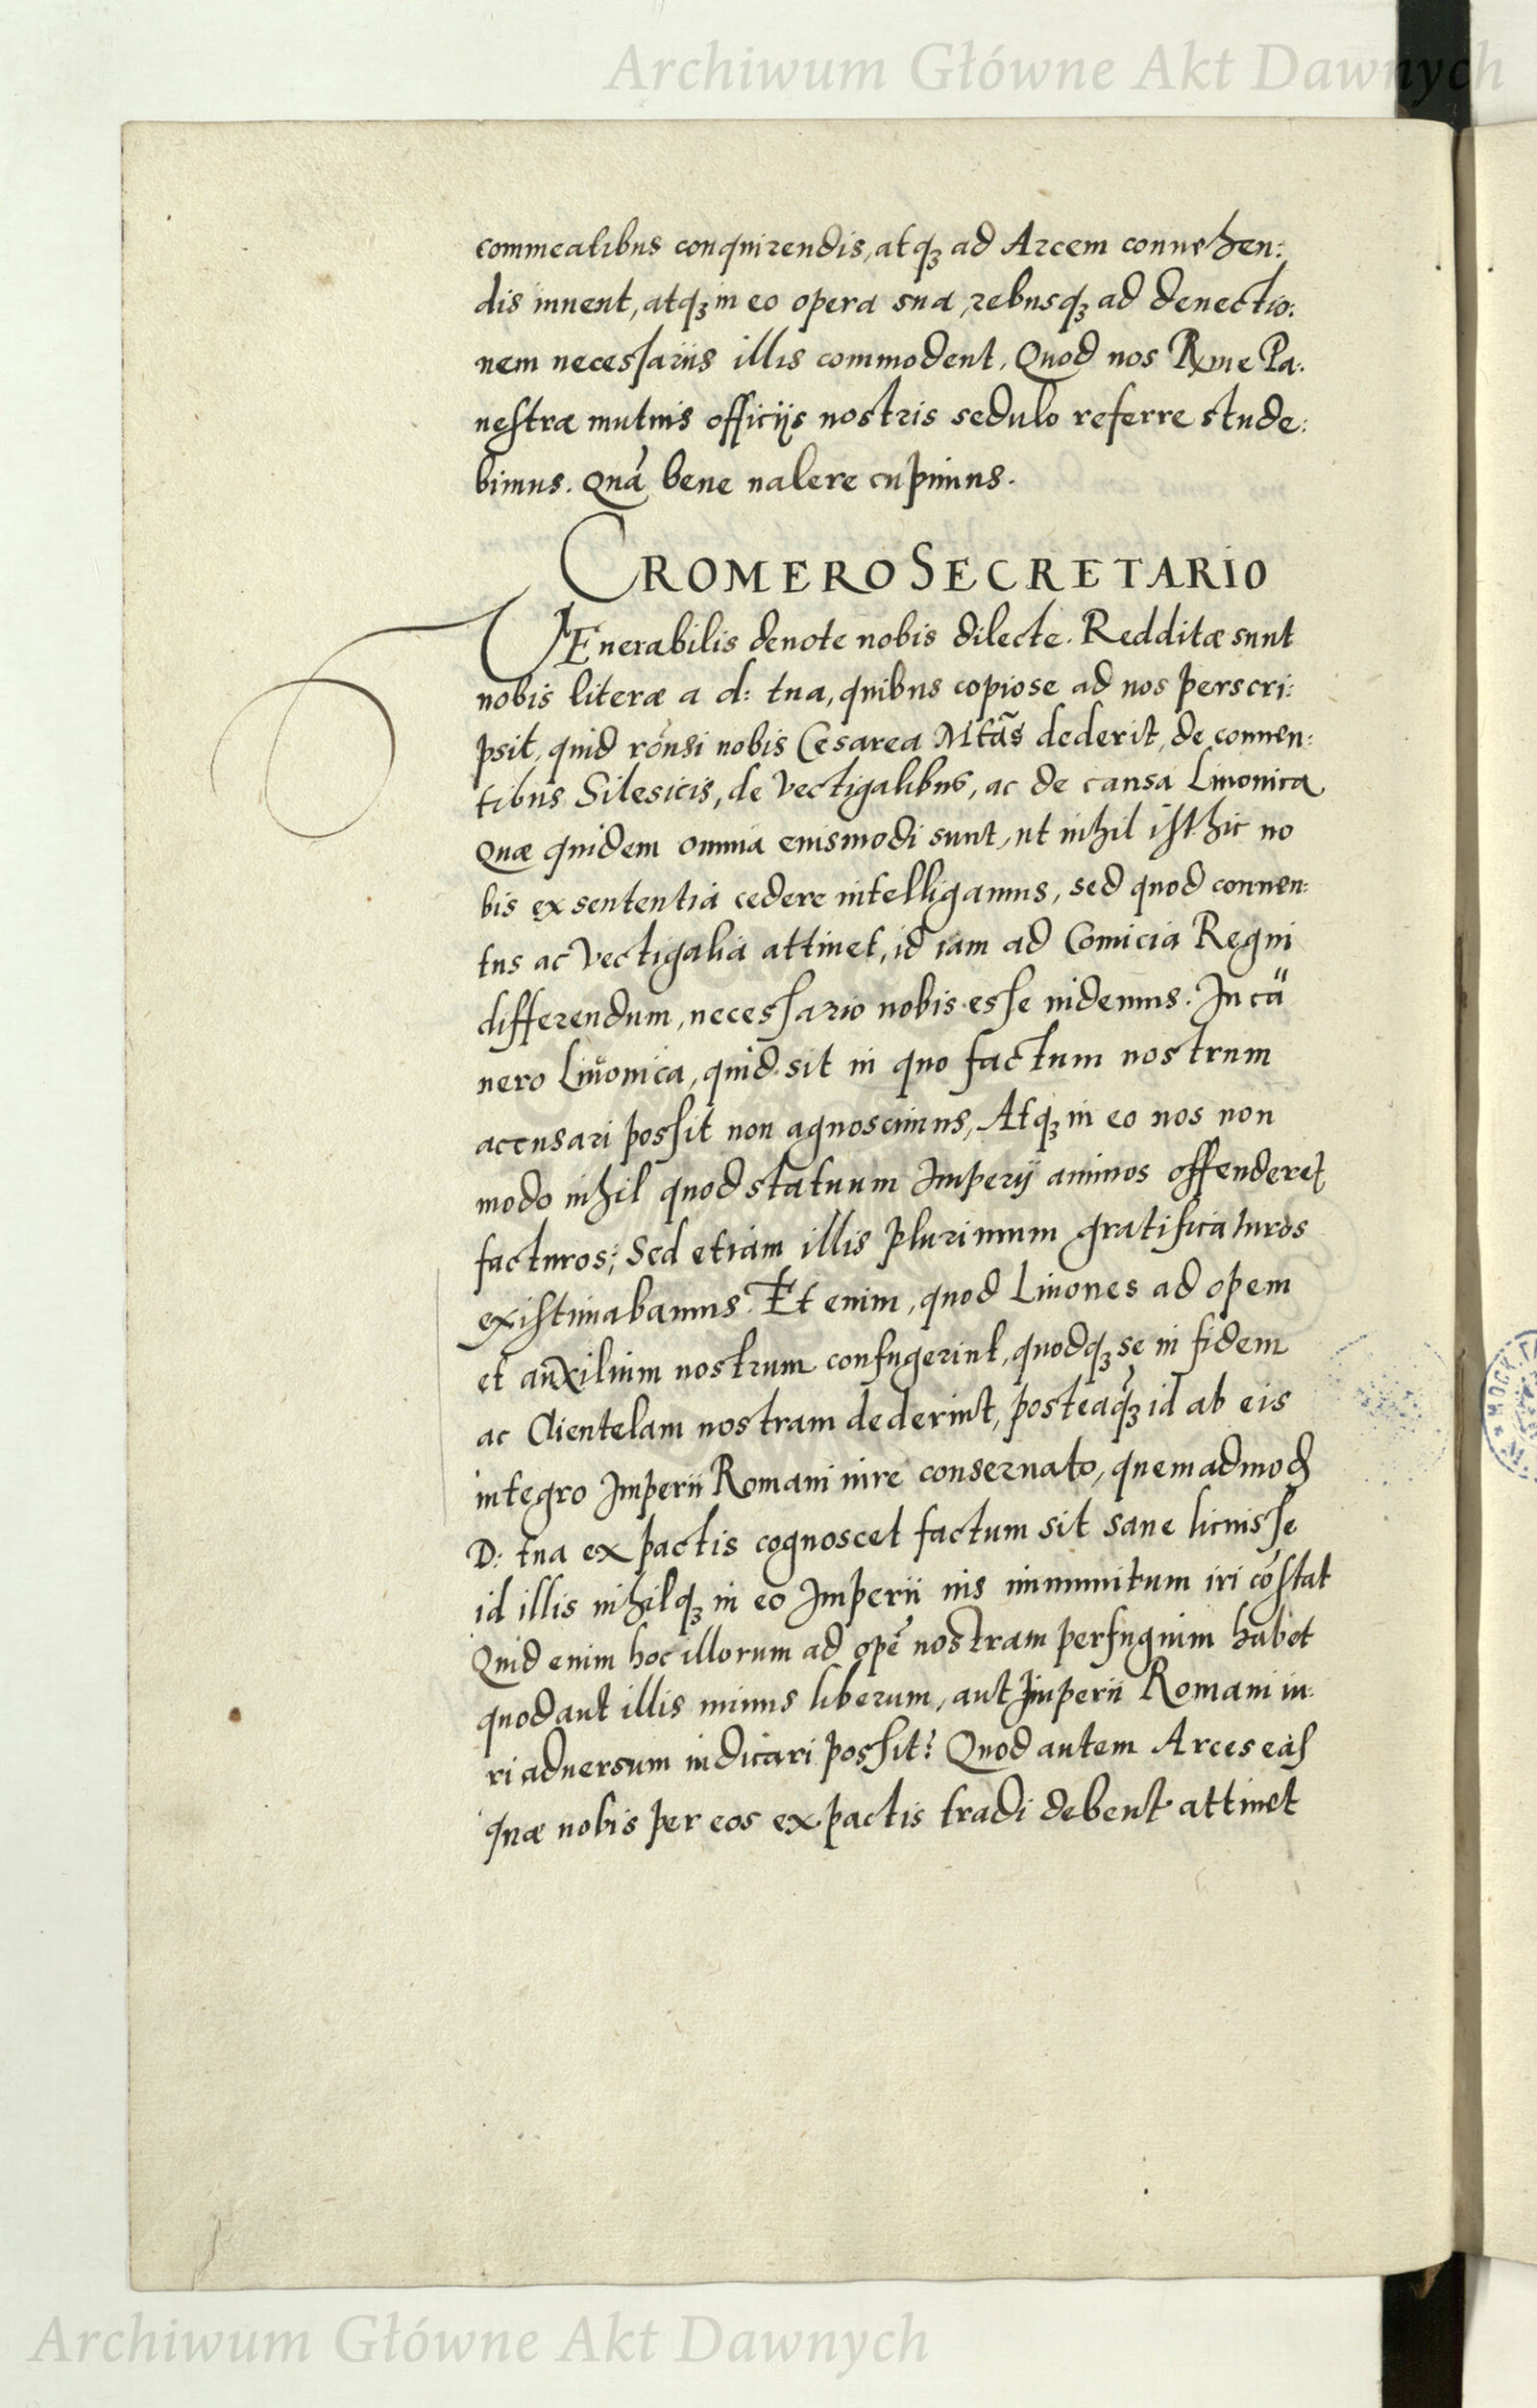 Archiwum Główne Akt Dawnych
commeatibus conquirendis, atqꝫ ad Arcem conuehen:
dis iuuent, atqꝫ in eo opera sua, rebusqꝫ ad deuectio:
nem necessariis illis commodent. Quod nos Rme Pa:
uestræ mutuis officijs nostris sedulo referre stude:
bimus. Quā bene ualere cupimus.
CROMERO SECRETARIO
VEnerabilis deuote nobis dilecte. Redditæ sunt
nobis literæ a d: tua, quibus copiose ad nos perscri:
psit, quid rōnsi nobis Cesarea Mtãs dederit, de conuen:
tibus Silesicis, de Vectigalibus, ac de causa Liuonica
Quæ quidem omnia eiusmodi sunt, ut nihil isthic no
bis ex sententia cedere intelligamus, sed quod conuen:
tus ac Vectigalia attinet, id iam ad Comicia Regni
differendum, necessario nobis esse uidemus. In cā
uero Liuonica, quid sit in quo factum nostrum
accusari possit non agnoscimus, Atqꝫ in eo nos non
modo nihil quod statuum Imperij animos offenderet
facturos; Sed etiam illis plurimum gratificaturos
existimabamus. Et enim, quod Liuones ad opem
et auxilium nostrum confugerint, quodqꝫ se in fidem
ac Clientelam nostram dederint, posteaq̃ꝫ id ab eis
integro Imperii Romani iure conseruato, quemadmod
D: tua ex pactis cognoscet factum sit sane licuisse
id illis nihilqꝫ in eo Imperii ius imminitum iri cōstat
Quid enim hoc illorum ad opē nostram perfugium habet
quod aut illis minus liberum, aut Imperii Romani iu:
ri aduersum iudicari possit? Quod autem Arces eas
quæ nobis per eos ex pactis tradi debent attinet
Archiwum Główne Akt Dawnych